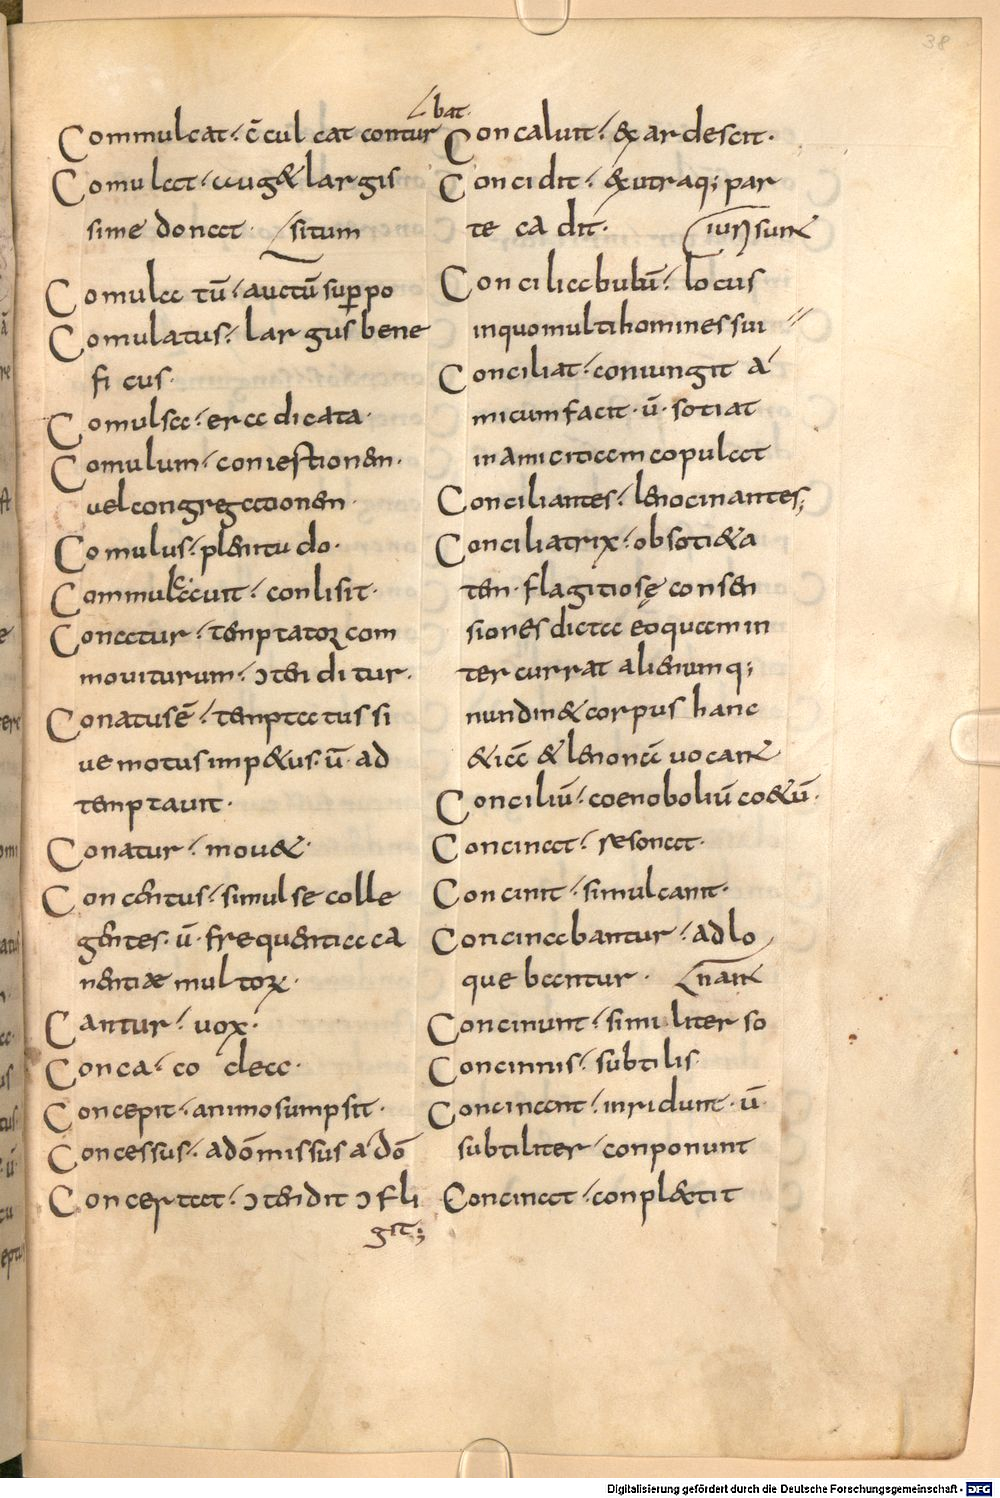 38
bat·
Commulcat· c̄culcat contur
Comulcat· aug& largis
sime donat· situm
Comulatū· auctū suppo
Comulatus· largus bene
ficus·
Comulsa· eradicata·
Comulum· coniestionem·
vel congregationem·
Comulus· plenitudo·
Commulcauit· conlisit·
Conatur· temptatoꝝ com
moviturum· ɔtenditur·
Conatus ē· temptatus si
ve motus imp&us· ū· ad
temptavit·
Conatur· mou&·
Concentus· simul se colle
gentes· ū· frequentia ca
nentiæ multoꝝ·
Cantur· vox·
Conca· co clea·
Concepit· animo sumpsit·
Concessus· adōmissus a dō
Concertat· ɔtendit ɔfli
git;
Concaluit· exardescit·
Concidit· & utraq; par
te cadit· iurꝝ sun&
Conciliabulū· locus
in quo multi homines sui
Conciliat· coniungit a
micum facit· ū· sotiat
in amicitiam copulat
Conciliantes· lenocinantes;
Conciliatrix· obsoti&a
ten· flagitiosę consen
siones dictae eo quaem in
ter currat alienumq;
nundin& corpus hanc
& iā & lenonē vocan&
Conciliū· coenoboliū co&ū·
Concinat· resonat·
Concinit· simul canit·
Concinabantur· adlo
quebantur· nan&
Concinunt· similiter so
Concinnis· subtilis·
Concinant· inridunt· ū·
subtiliter conponunt
Concinat· conplectit
Digitalisierung gefördert durch die Deutsche Forschungsgemeinschaft - DFG